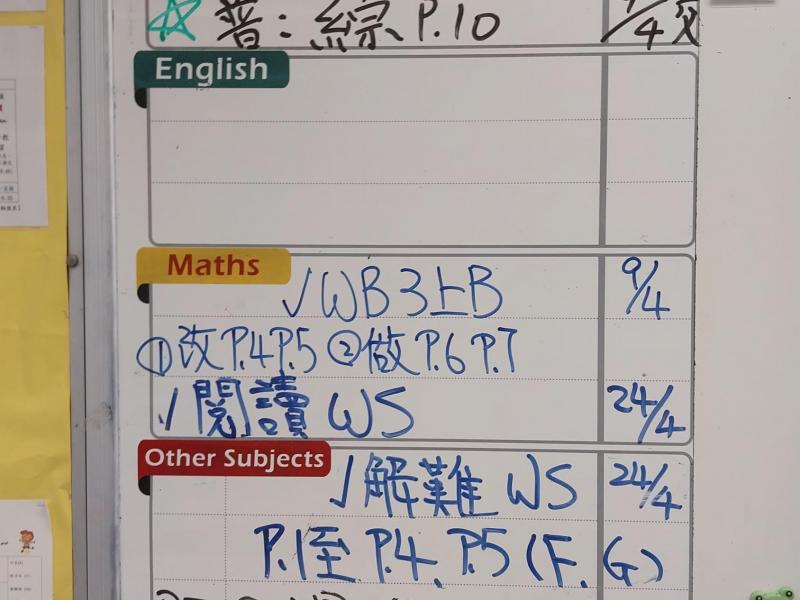 普：綜 P.10
English
Maths
√WB3上B 9/4
①改P.4P.5 ②做P.6 P.7
√閱讀 WS 24/4
Other Subjects
√解難 WS 24/4
P.1至 P.4、P.5 (F. G)